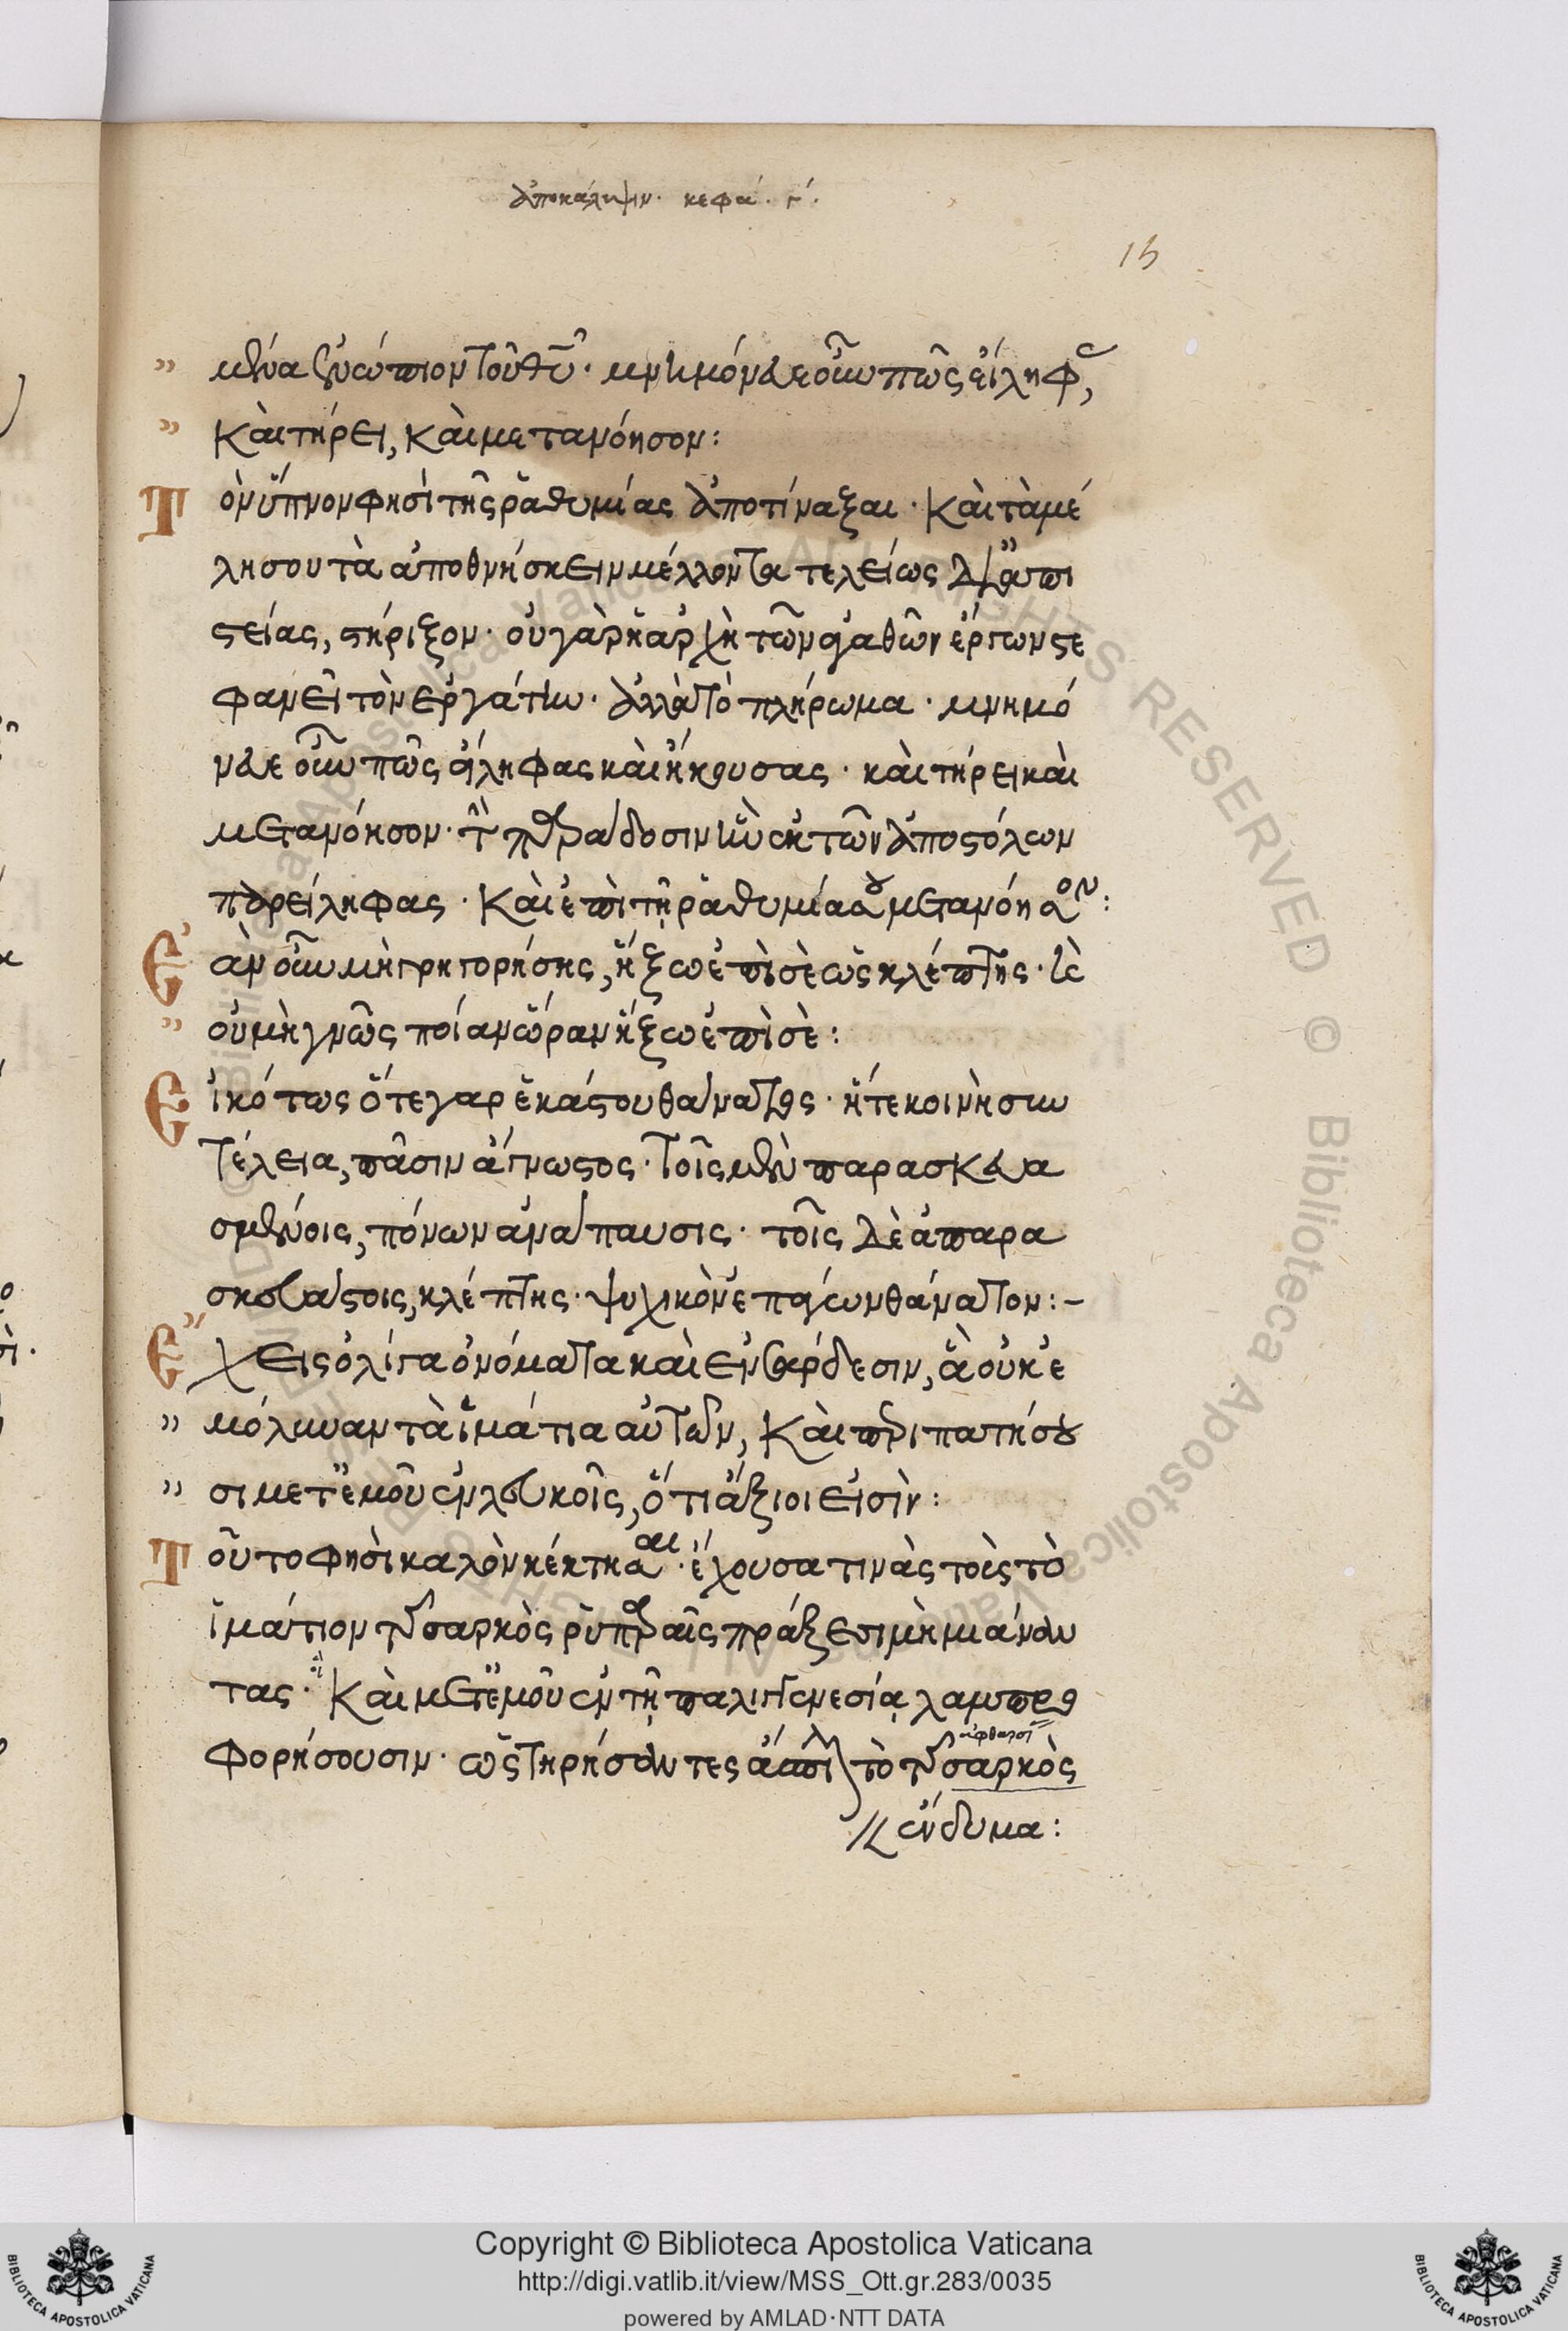 ἀποκάλυψιν. κεφά. γ΄.
15
μένα ἐνώπιον τοῦ θῡ· μνημόνευε οὖν πῶς εἴληφας,
καὶ τήρει, καὶ μετανόησον:
Τὸν ὕπνον φησὶ τῆς ῥαθυμίας ἀποτίναξαι· καὶ τὰ μέ
λη σου τὰ ἀποθνήσκειν μέλλοντα τελείως δι' ἀπι
στείας, στήριξον· οὐ γὰρ ἡ ἀρχὴ τῶν ἀγαθῶν ἔργων στε
φανεῖ τὸν ἐργάτην· ἀλλὰ τὸ πλήρωμα· μνημό
νευε οὖν πῶς εἴληφας καὶ ἤκουσας· καὶ τήρει καὶ
μετανόησον· τὴν παράδοσιν ἣν ἐκ τῶν ἀποστόλων
παρείληφας· καὶ ἐπὶ τῇ ῥαθυμίᾳ σου μετανόησον:
Ἐὰν οὖν μὴ γρηγορήσῃς, ἥξω ἐπὶ σὲ ὡς κλέπτης· καὶ
οὐ μὴ γνῷς ποίαν ὥραν ἥξω ἐπὶ σέ:
Εἰκότως ὅ τε γὰρ ἑκάστου θάνατος· ἥ τε κοινὴ συν
τέλεια, πᾶσιν ἄγνωστος· τοῖς μὲν παρασκευα
σμένοις, πόνων ἀνάπαυσις· τοῖς δὲ ἀπαρα
σκευάστοις, κλέπτης· ψυχικὸν ἐπάγων θάνατον:-
Ἔχεις ὀλίγα ὀνόματα καὶ ἐν σάρδεσιν, ἃ οὐκ ἐ
μόλυναν τὰ ἱμάτια αὐτῶν, καὶ περιπατήσου
σι μετ' ἐμοῦ ἐν λευκοῖς, ὅτι ἄξιοί εἰσιν:
Τοῦτο φησὶ καλὸν κέκτησαι· ἔχουσα τινὰς τοὺς τὸ
ἱμάτιον τῆς σαρκὸς ῥυπαραῖς πράξεσι μὴ μιάναν
τας· οἳ καὶ μετ' ἐμοῦ ἐν τῇ παλιγγενεσίᾳ λαμπρο
φορήσουσιν· ὡς τηρήσαντες ἄσπιλον τὸ τῆς σαρκὸς
ἔνδυμα:
Copyright © Biblioteca Apostolica Vaticana
http://digi.vatlib.it/view/MSS_Ott.gr.283/0035
powered by AMLAD·NTT DATA